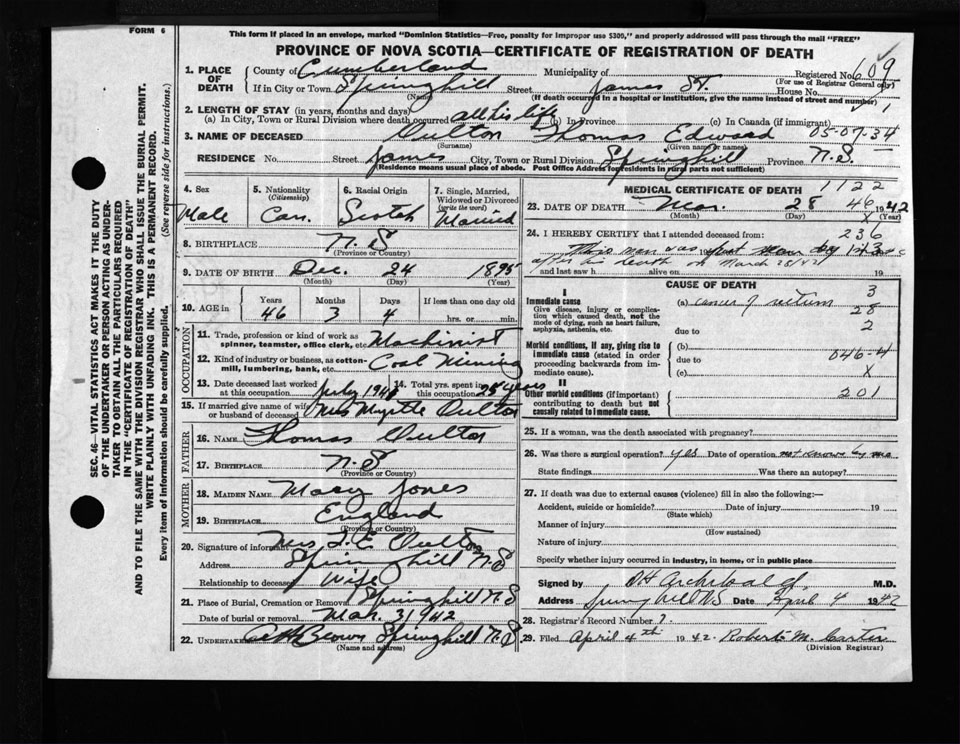 FORM 6
This form if placed in an envelope, marked "Dominion Statistics—Free, penalty for improper use $300," and properly addressed will pass through the mail "FREE"
PROVINCE OF NOVA SCOTIA—CERTIFICATE OF REGISTRATION OF DEATH
SEC. 46—VITAL STATISTICS ACT MAKES IT THE DUTY
OF THE UNDERTAKER OR PERSON ACTING AS UNDER-
TAKER TO OBTAIN ALL THE PARTICULARS REQUIRED
IN THE "CERTIFICATE OF REGISTRATION OF DEATH"
AND TO FILE THE SAME WITH THE DIVISION REGISTRAR WHO SHALL ISSUE THE BURIAL PERMIT.
WRITE PLAINLY WITH UNFADING INK. THIS IS A PERMANENT RECORD.
Every item of information should be carefully supplied. (See reverse side for instructions.)
1. PLACE OF DEATH
County of Cumberland Municipality of Registered No. 609
(For use of Registrar General only)
If in City or Town Springhill Street James St. House No.
(Name) (If death occurred in a hospital or institution, give the name instead of street and number)
2. LENGTH OF STAY (in years, months and days)
(a) In City, Town or Rural Division where death occurred all his life (b) In Province (c) In Canada (if immigrant)
3. NAME OF DECEASED Oulton Thomas Edward 05-07-34
(Surname) (Given name or names)
RESIDENCE No. Street James City, Town or Rural Division Springhill Province N.S.
(Residence means usual place of abode. Post Office Address for residents in rural parts not sufficient)
4. Sex
Male
5. Nationality
(Citizenship)
Can.
6. Racial Origin
Scotch
7. Single, Married,
Widowed or Divorced
(write the word)
Married
8. BIRTHPLACE N.S
(Province or Country)
9. DATE OF BIRTH Dec. 24 1895
(Month) (Day) (Year)
10. AGE in Years Months Days If less than one day old
46 3 4 hrs. or min.
OCCUPATION
11. Trade, profession or kind of work as
spinner, teamster, office clerk, etc. Machinist
12. Kind of industry or business, as cotton-
mill, lumbering, bank, etc. Coal Mining
13. Date deceased last worked
at this occupation July 1941
14. Total yrs. spent in
this occupation 25 years
15. If married give name of wife
or husband of deceased Mrs Myrtle Oulton
FATHER
16. NAME Thomas Oulton
17. BIRTHPLACE N.S
(Province or Country)
MOTHER
18. MAIDEN NAME Mary Jones
19. BIRTHPLACE England
(Province or Country)
20. Signature of informant Mrs T. E. Oulton
Address Springhill N S
Relationship to deceased Wife
21. Place of Burial, Cremation or Removal Springhill N.S
Date of burial or removal Mar. 31 1942
22. UNDERTAKER Brown Springhill N.S
(Name and address)
MEDICAL CERTIFICATE OF DEATH
1122
23. DATE OF DEATH Mar. 28 46 1942
(Month) (Day) X (Year)
24. I HEREBY CERTIFY that I attended deceased from: 236
This man was first seen by
after his death on March 28/42
and last saw h alive on 19
CAUSE OF DEATH
I
Immediate cause
Give disease, injury or complica-
tion which caused death, not the
mode of dying, such as heart failure,
asphyxia, asthenia, etc.
(a) cancer of rectum 3
28
due to 2
Morbid conditions, if any, giving rise to
immediate cause (stated in order
proceeding backwards from im-
mediate cause).
(b)
due to 046-4
(c) X
II
Other morbid conditions (if important)
contributing to death but not
causally related to immediate cause.
201
25. If a woman, was the death associated with pregnancy?
26. Was there a surgical operation? yes Date of operation not known by me
State findings Was there an autopsy?
27. If death was due to external causes (violence) fill in also the following:—
Accident, suicide or homicide? Date of injury 19
(State which)
Manner of injury
(How sustained)
Nature of injury
Specify whether injury occurred in industry, in home, or in public place
Signed by Archibald M.D.
Address Springhill NS Date April 4 1942
28. Registrar's Record Number 7.
29. Filed April 4th 1942. Robert M. Carter
(Division Registrar)